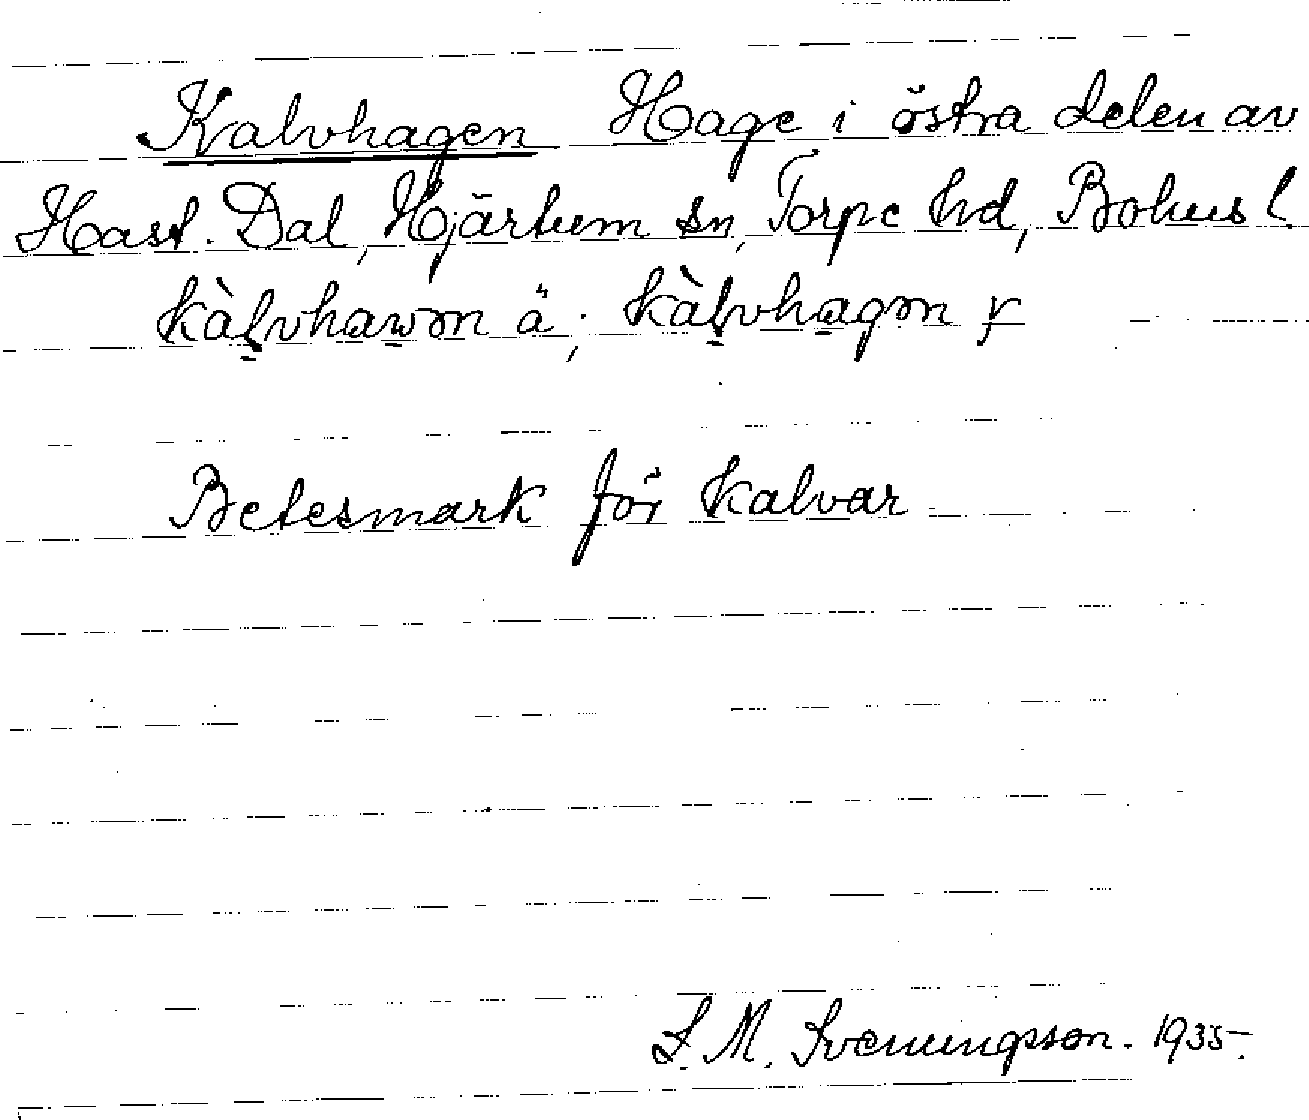 Kalvhagen Hage i östra delen av
Hast. Dal, Hjärtum sn, Torpe hd, Bohusl.
kàl̠vha̠w̠ən ä; kàl̠vha̠gən y
Betesmark för kalvar
S. M. Svenungsson. 1935.